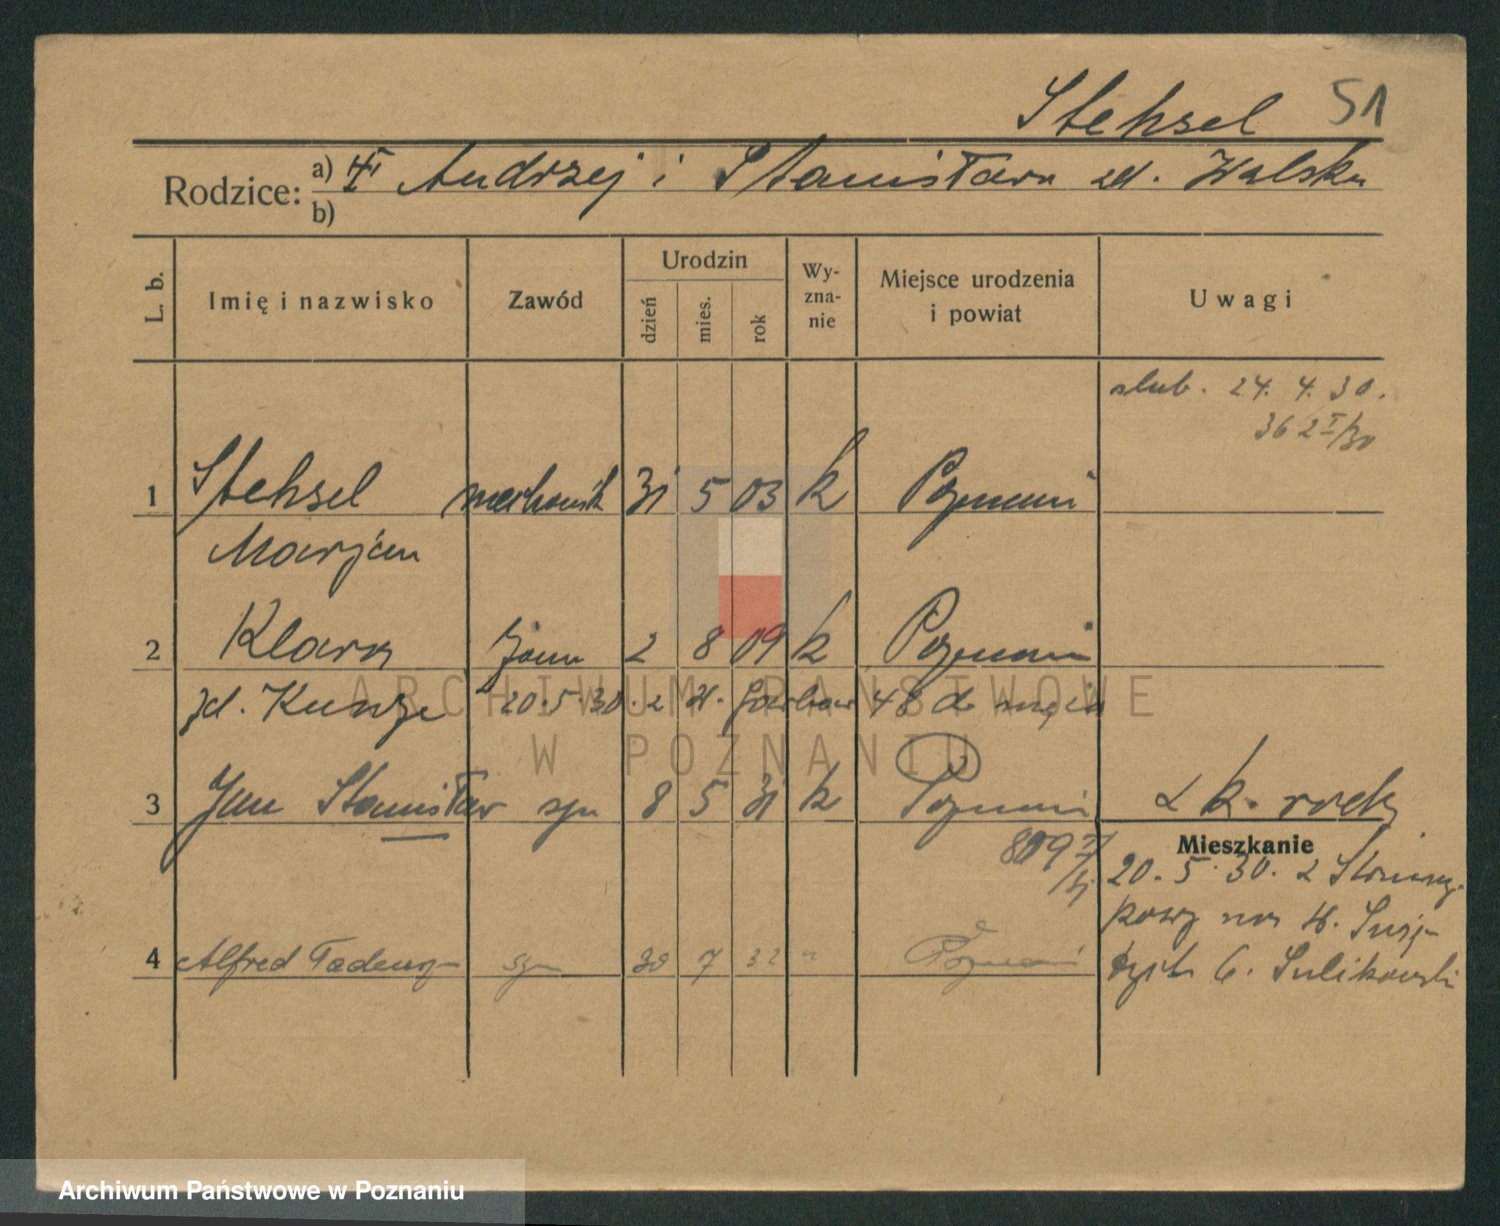 Stehsel 51
Rodzice: a) Andrzej i Stanisława zd. Walska
b)
L. b. Imię i nazwisko Zawód Urodzin dzień mies. rok Wyznanie Miejsce urodzenia i powiat Uwagi
slub. 24. 4. 30.
362 I/30
1 Stehsel mechanik 31 5 03 k Poznań
Marjan
2 Klara żona 2 8 09 k Poznań
zd. Kunze 20.5.30. z ul. 48 do męża
3 Jan Stanisław syn 8 5 31 k Poznań
Mieszkanie
20. 5. 30. z
ul.
6. Sulikowski
4 Alfred Tadeusz syn 30 7 32 " Poznań
ARCHIWUM PAŃSTWOWE
W POZNANIU
Archiwum Państwowe w Poznaniu